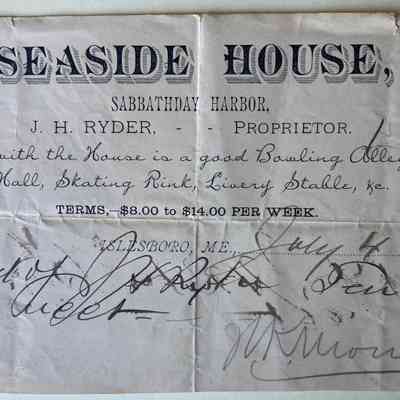 SEASIDE HOUSE,
SABBATHDAY HARBOR,
J. H. RYDER, - - PROPRIETOR.
with the House is a good Bowling Alley
Hall, Skating Rink, Livery Stable, &c.
TERMS,—$8.00 to $14.00 PER WEEK.
ISLESBORO, ME., July 4